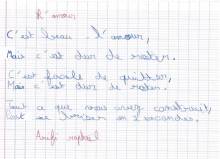 L'amour
C'est beau l'amour,
Mais c'est dur de rester.
C'est facile de quitter,
Mais c'est dur de rester.
Tout ce que vous avez construit,
Peut se briser en 2 secondes.